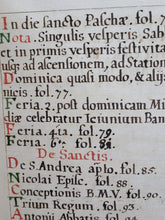 In die sancto Paschæ. fol. 7
Nota. Singulis vesperis Sab
et in primis vesperis festivita
usq; ad ascensionem, ad Station
Dominica quasi modo, & ali
nicis. fol. 77.
Feria. 2. post dominicam M
diæ celebratur Ieiunium Bann
Feria. 4ta. fol. 79.
Feria. 6ta. fol. 81.
De Sanctis.
De S. Andrea. fol. 85.
Nicolai Episc. fol. 88.
Conceptionis B.M.V. fol. 90.
Trium Regum. fol. 93.
Antonii Abbatis. fol. 94